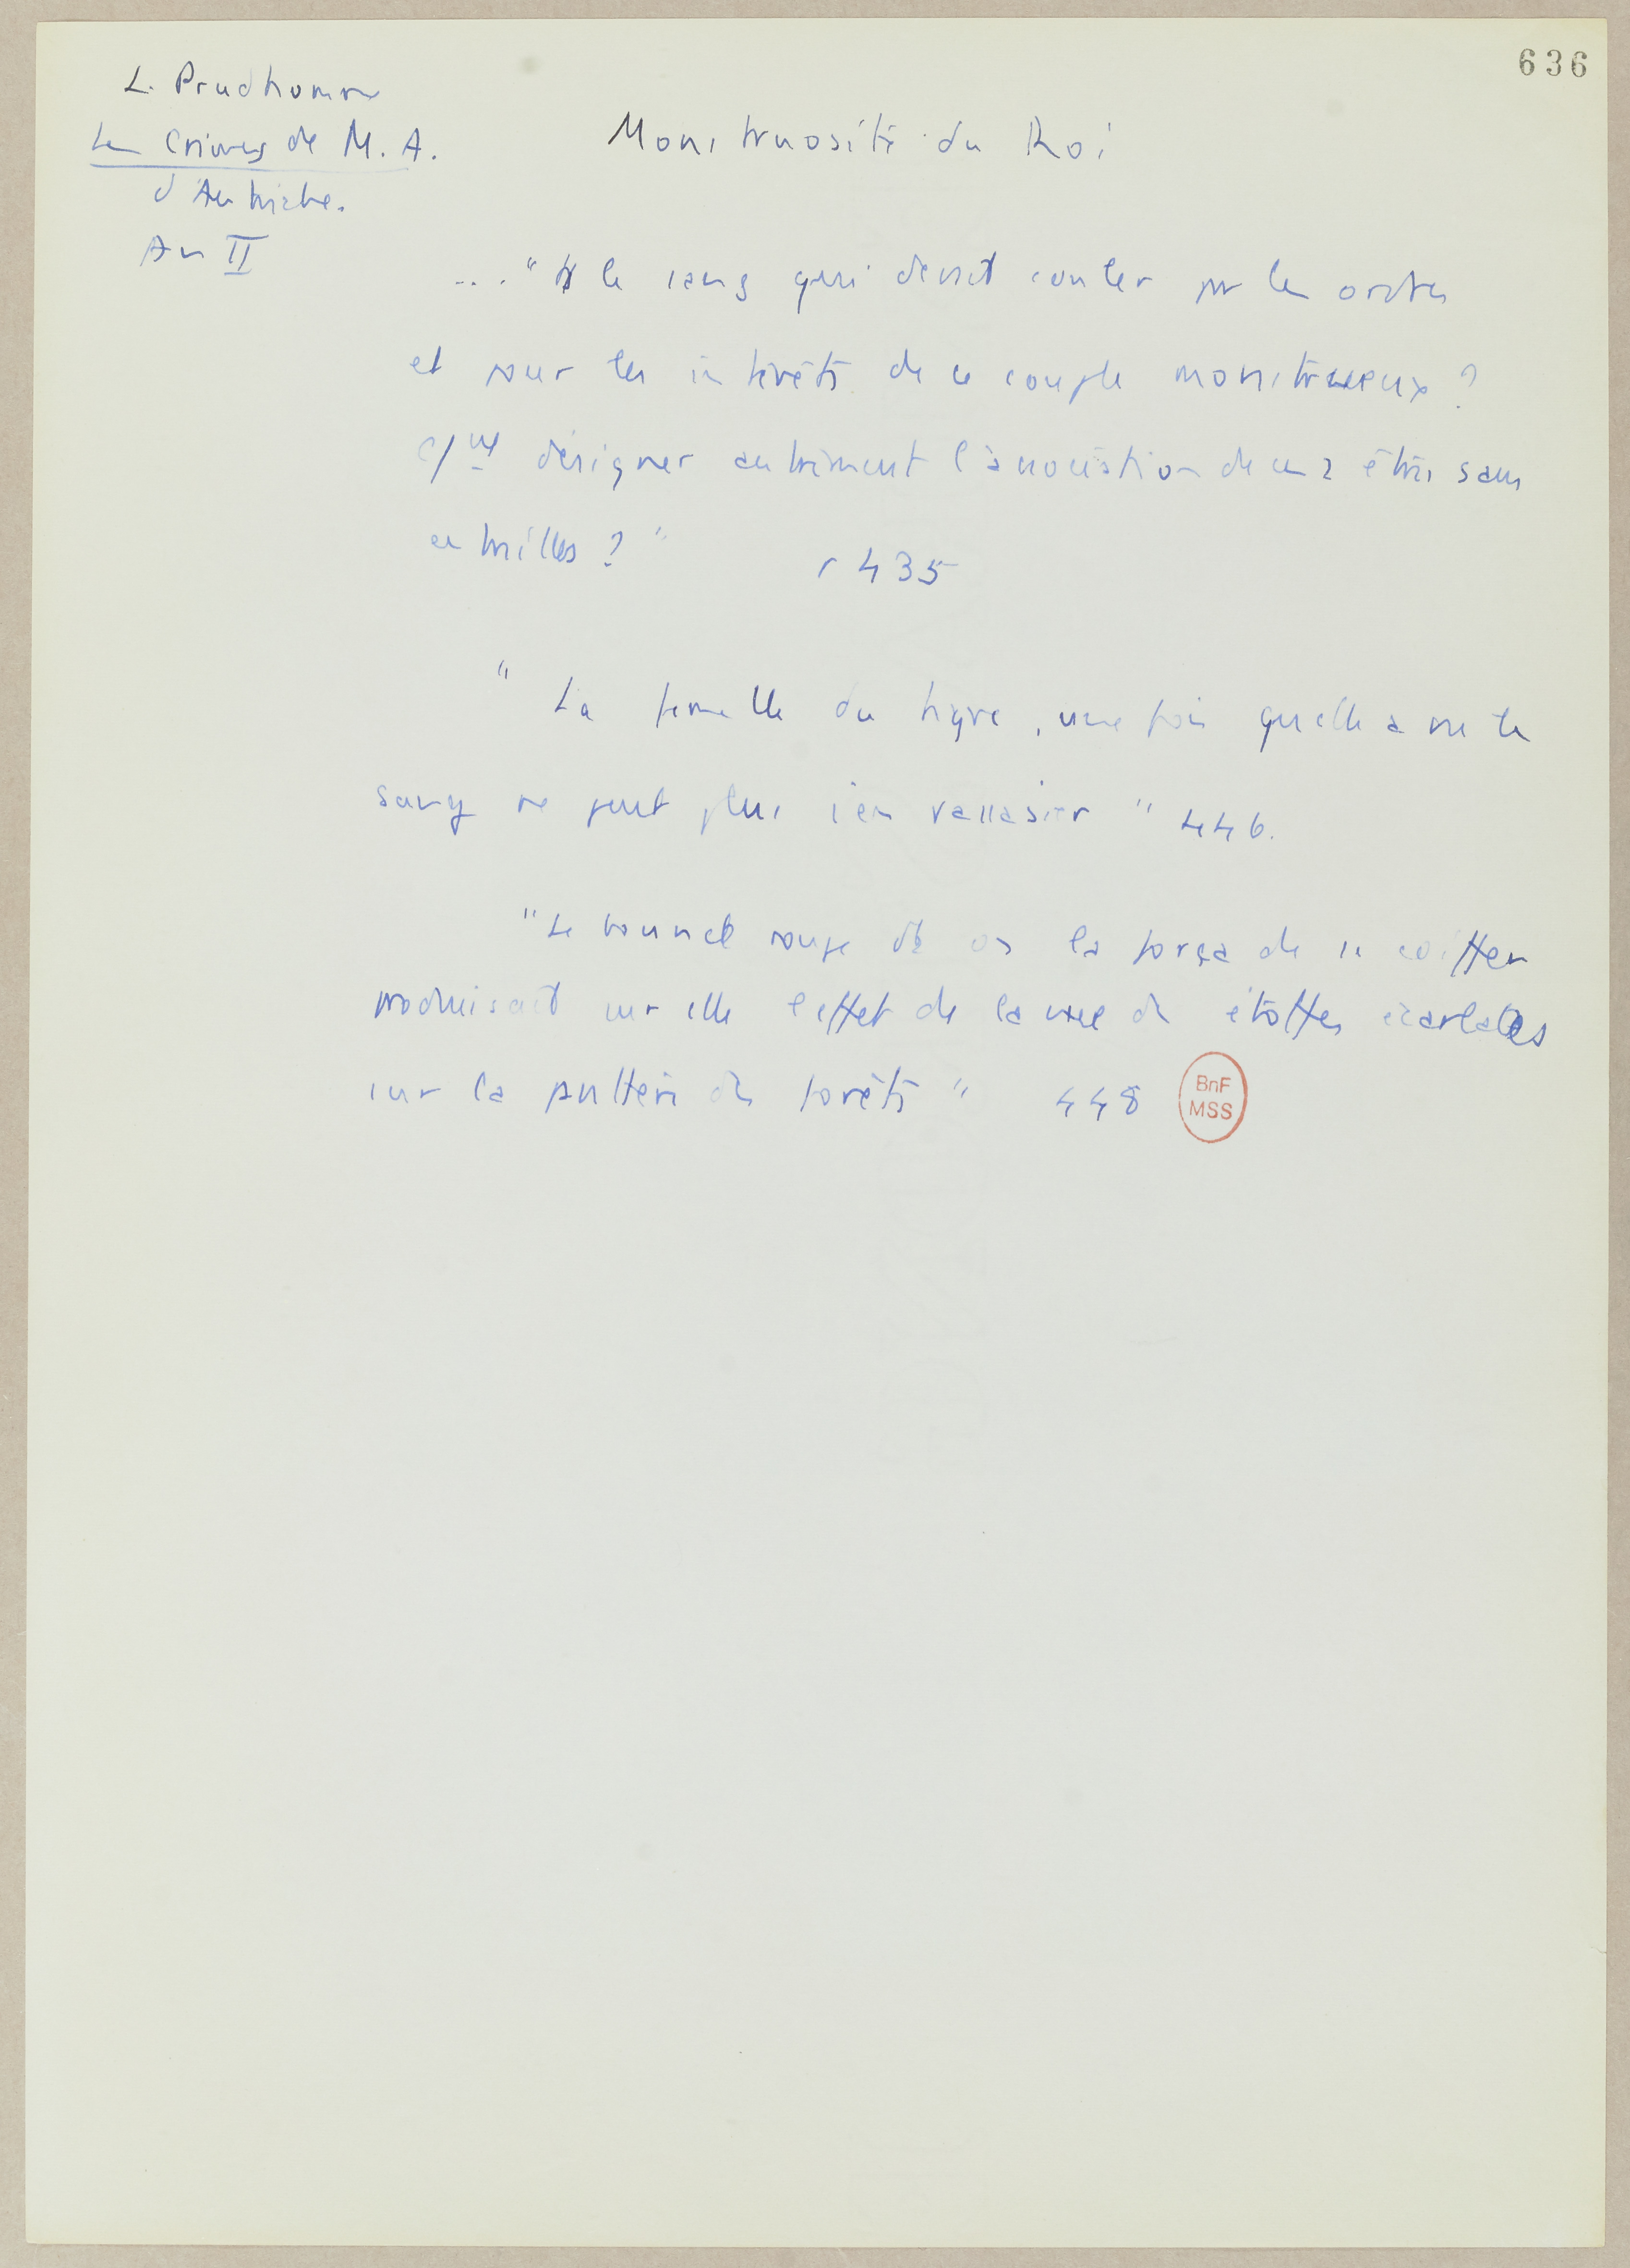 636
L. Prudhomme
Les Crimes de M. A.
d'Autriche.
An II
Monstruosité du Roi
... " le sang qui devait couler par les ordres
et pour les intérêts de ce couple monstrueux ?
désigner autrement l'association de ces 2 êtres sans
entrailles ? " p 435
" La femelle du tigre, une fois qu'elle a vu le
sang ne peut plus s'en rassasier " 446.
" Le bonnet rouge dt on la força de se coiffer
produisait sur elle l'effet de la vue des étoffes écarlates
sur la panthère des forêts " 448
BnF
MSS